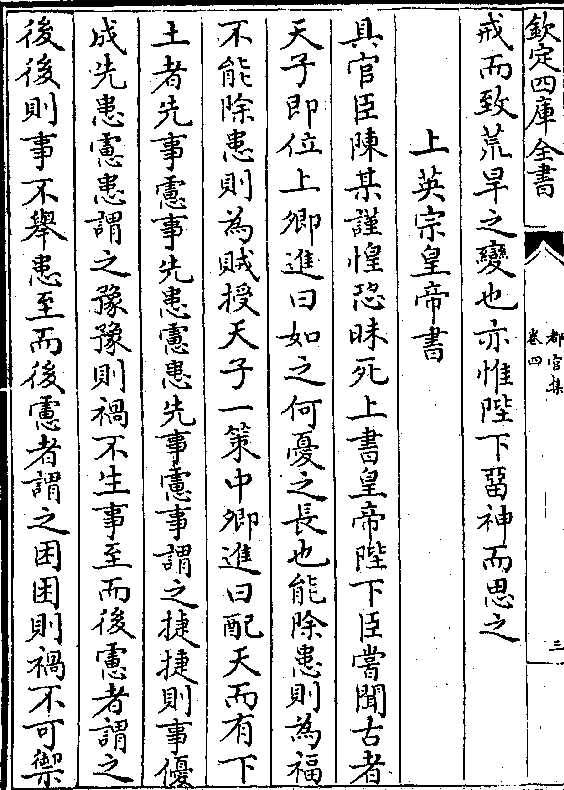 欽定四庫全書
都官集
卷四
三
戒而致荒旱之變也亦惟陛下留神而思之
上英宗皇帝書
具官臣陳某謹惶恐昧死上書皇帝陛下臣嘗聞古者
天子即位上卿進曰如之何憂之長也能除患則為福
不能除患則為賊授天子一策中卿進曰配天而有下
土者先事慮事先患慮患先事慮事謂之捷捷則事優
成先患慮患謂之豫豫則禍不生事至而後慮者謂之
後後則事不舉患至而後慮者謂之困困則禍不可禦